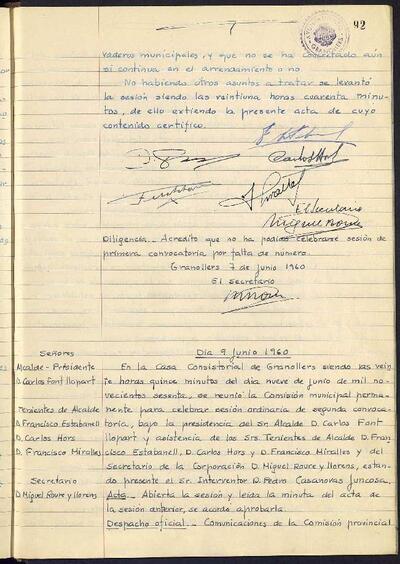 92
vaderos municipales, y que no se ha concertado aún
si continua en el arrendamiento o no.
No habiendo otros asuntos a tratar se levantó
la sesión siendo las veintiuna horas cuarenta minu-
tos, de ello extiendo la presente acta de cuyo
contenido certifico.
Carlos Hors
El Secretario
Diligencia.- Acredito que no ha podido celebrarse sesión de
primera convocatoria por falta de número.
Granollers 7 de junio 1960
El secretario
Señores
Alcalde-Presidente
D. Carlos Font llopart
Tenientes de Alcalde
D. Francisco Estabanell
D. Carlos Hors
D. Francisco Miralles
Secretario
D. Miguel Roure y llorens
Dia 9 junio 1960
En la Casa Consistorial de Granollers siendo las vein-
te horas quince minutos del dia nueve de junio de mil no-
vecientos sesenta, se reunió la Comisión municipal perma-
nente para celebrar sesión ordinaria de segunda convoca-
toria, bajo la presidencia del Sr. Alcalde D. Carlos Font
llopart y asistencia de los Srs. Tenientes de Alcalde D. Fran-
cisco Estabanell, D. Carlos Hors y D. Francisco Miralles y del
Secretario de la Corporación D. Miguel Roure y llorens, estan-
do presente el Sr. Interventor D. Pedro Casanovas Juncosa.
Acta.- Abierta la sesión y leida la minuta del acta de
la sesión anterior, se acordo aprobarla.
Despacho oficial.- Comunicaciones de la Comisión provincial